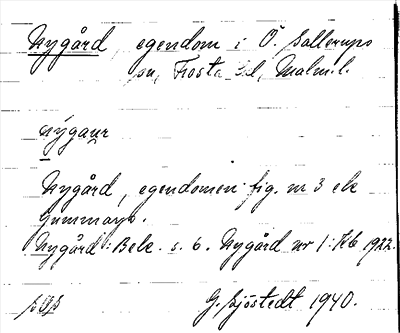 Nygård, egendom i Ö. Sallerups
sn, Frosta hd, Malm. l.
nýgaur
Nygård, egendomen fig. nr 3 ek
Gummarp.
Nygård: Bek. s. 6. Nygård nr 1: Kb 1922.
G. Sjöstedt 1940.